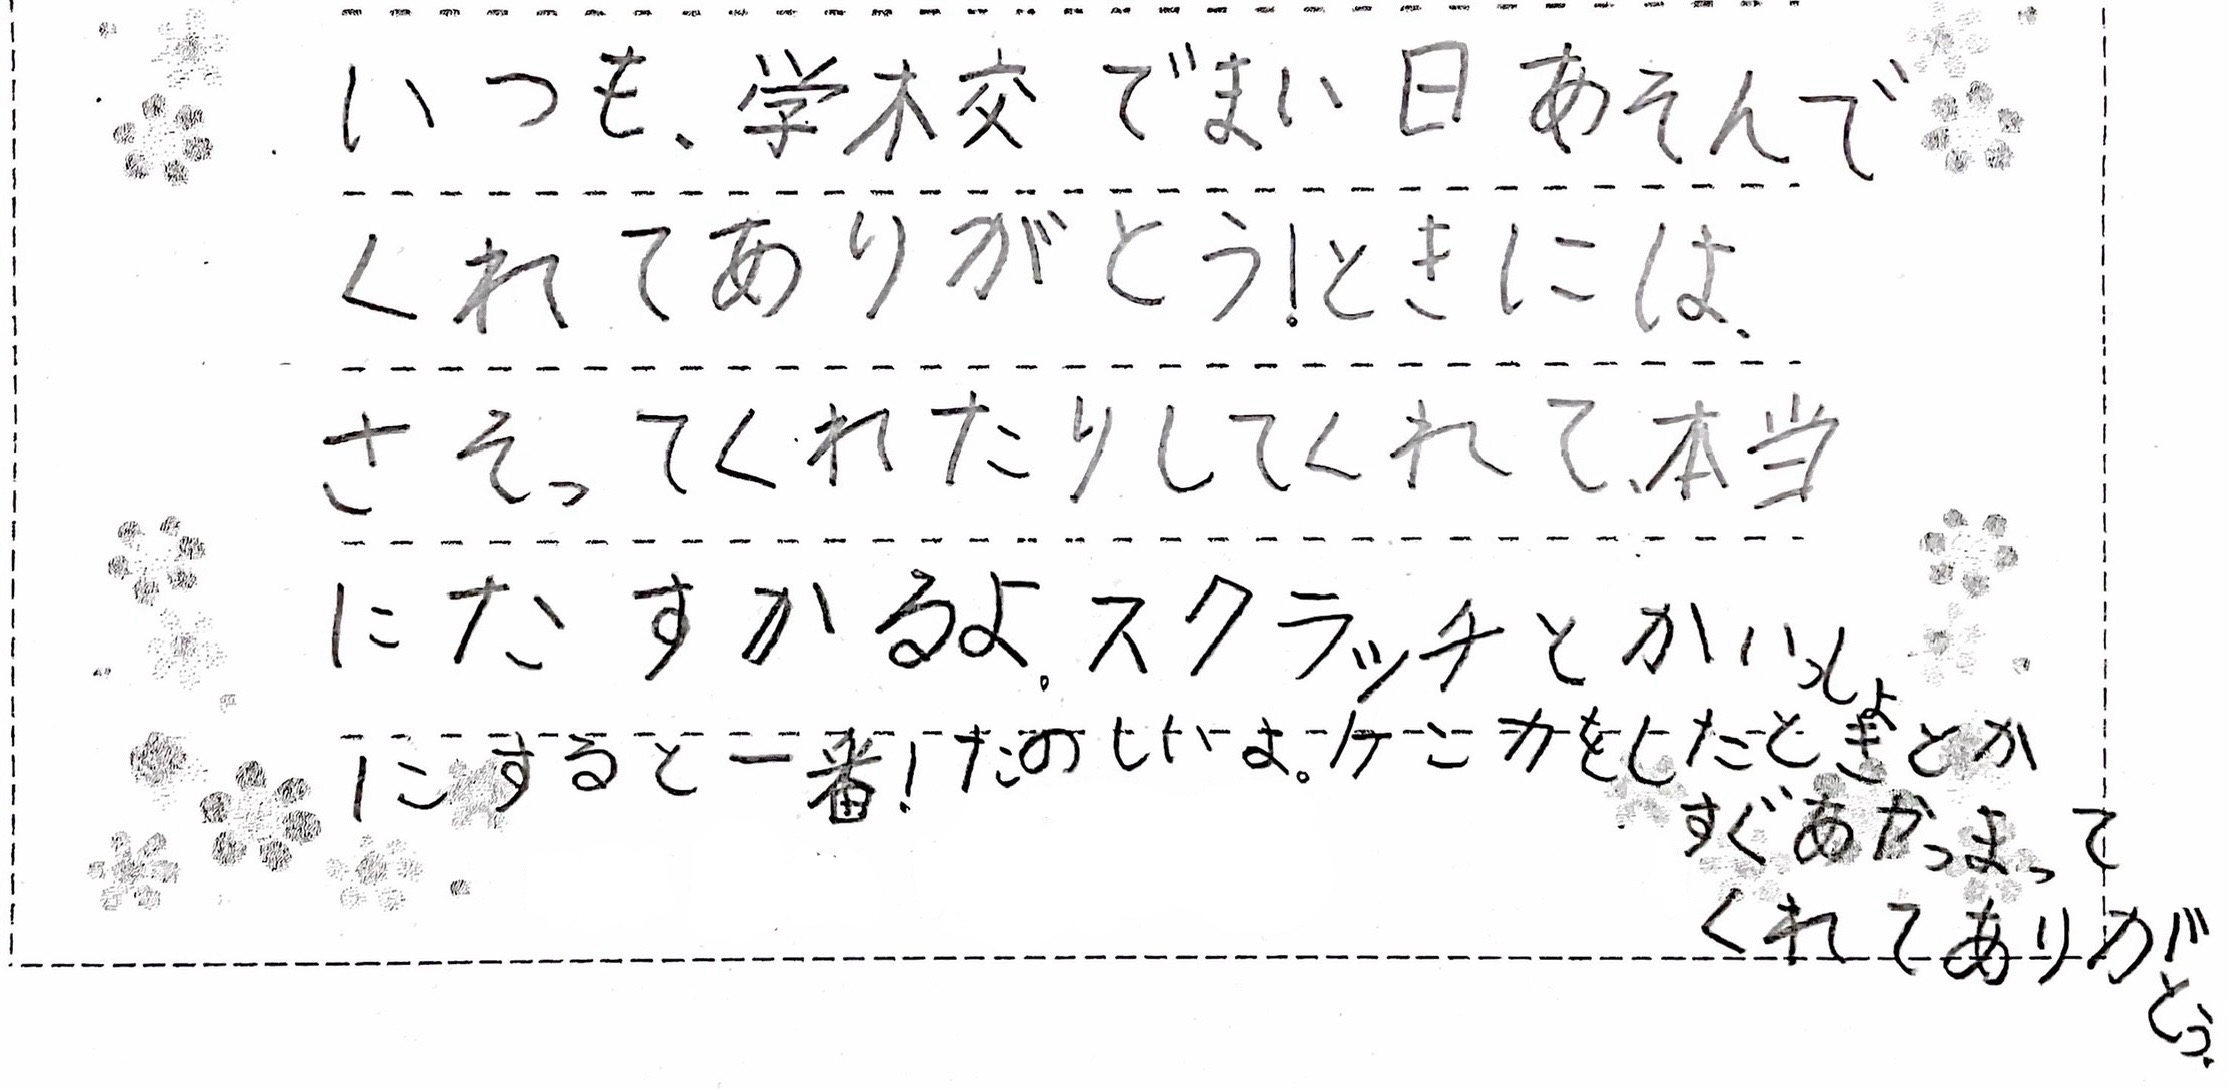 いつも、学校でまい日あそんで
くれてありがとう!ときには、
さそってくれたりしてくれて、本当
にたすかるよ。スクラッチとかいっしょ
にすると一番!たのしいよ。ケンカをしたときとか
すぐあかつまって
くれてありが
とう。